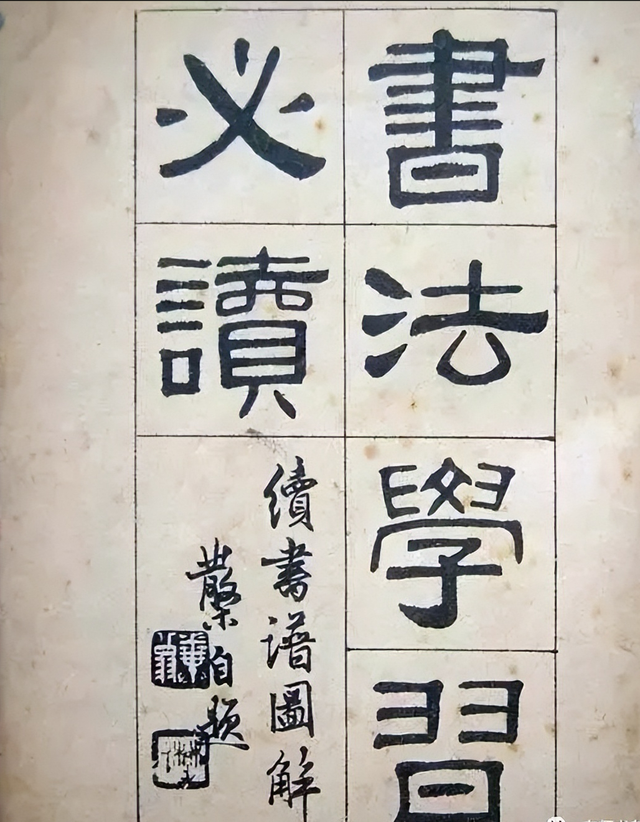 書法學習
必讀
續書譜圖解
散木自題